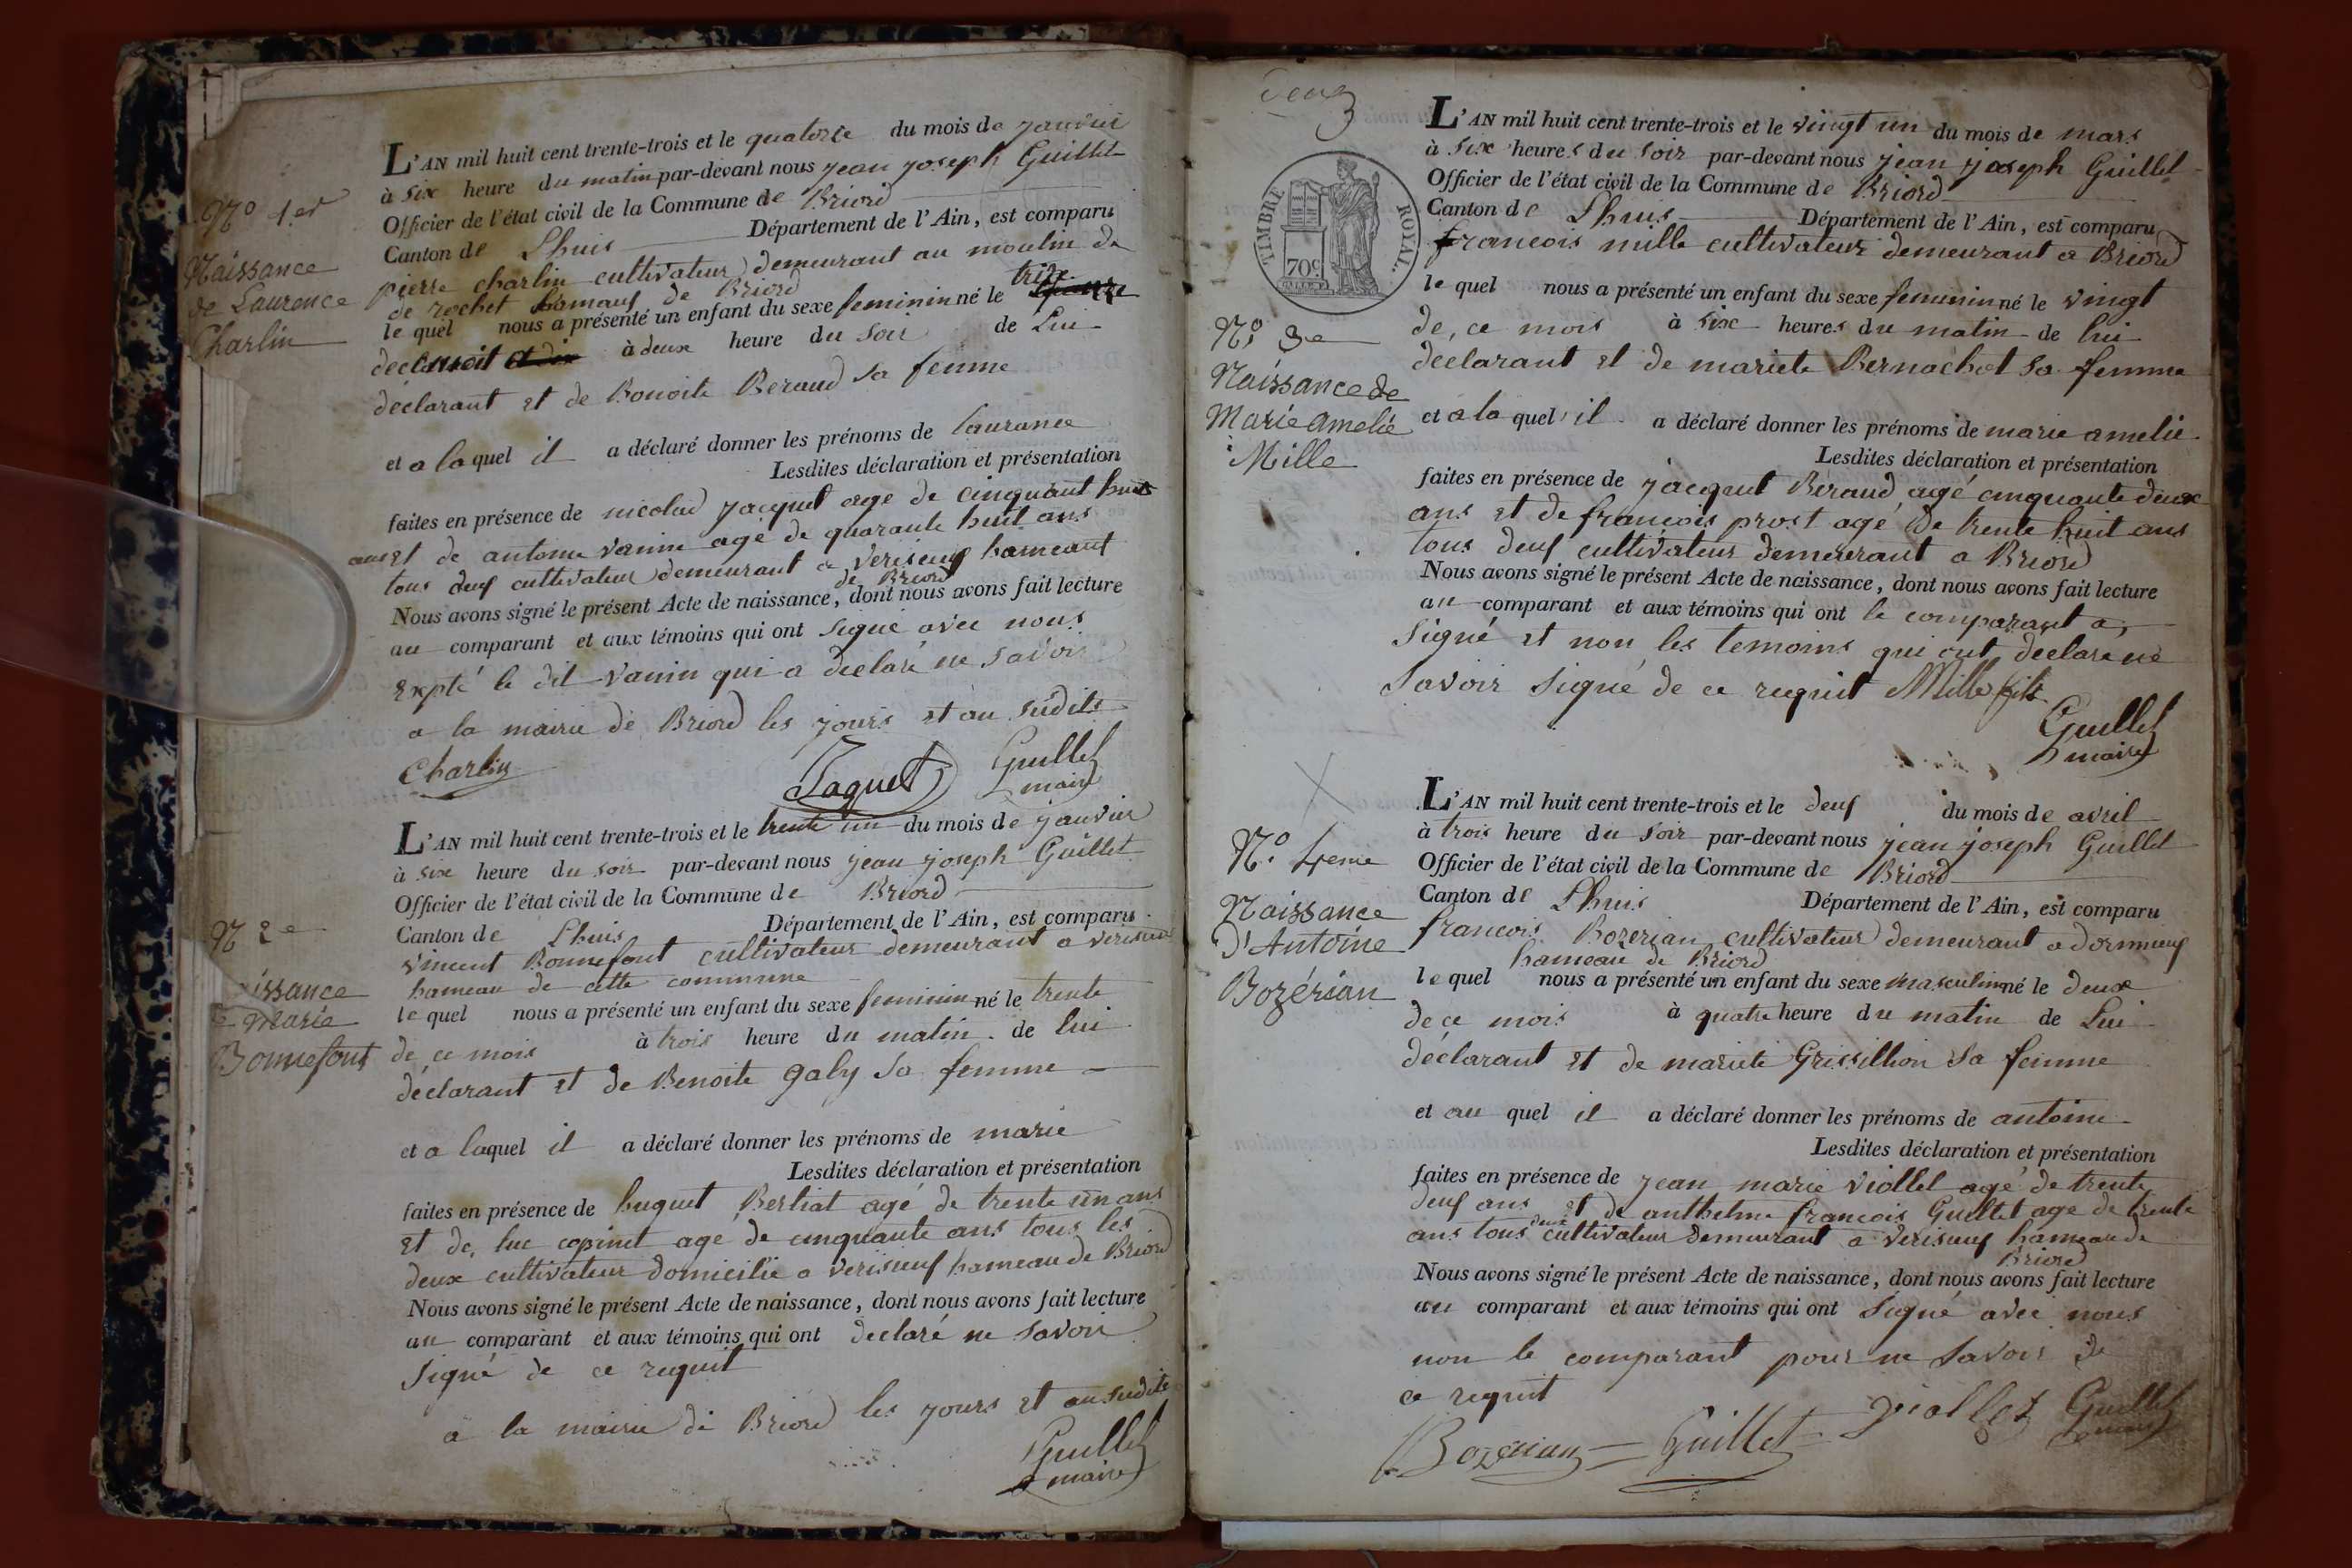 N.º 1.er
Naissance
de Laurence
Charlin
L'AN mil huit cent trente-trois et le quatorze du mois de janvier
à six heure du matin par-devant nous jean joseph Guillet
Officier de l'état civil de la Commune de Briord
Canton de Lhuis Département de l'Ain, est comparu
pierre charlin cultivateur demeurant au moulin de
de rochet hamauf de Briord
le quel nous a présenté un enfant du sexe feminin né le treize
à deux heure du soir de Lui
déclarant et de Bonoite Beraud sa femme
et a la quel il a déclaré donner les prénoms de laurance
Lesdites déclaration et présentation
faites en présence de nicolad jacquet age de cinquant huit
ans et de antoine vanin agé de quarante huit ans
tous deuf cultivateur demeurant a veriseuf hameaut
de Briord
Nous avons signé le présent Acte de naissance, dont nous avons fait lecture
au comparant et aux témoins qui ont signé avec nous
expté le dit vanin qui a declaré ne savoir
a la mairie de Briord les jours et an sudits
Charlin Jaquet Guillet
maire
N 2e
issance
de Marie
Bonnefont
L'AN mil huit cent trente-trois et le trente un du mois de janvier
à six heure du soir par-devant nous jean joseph Guillet
Officier de l'état civil de la Commune de Briord
Canton de Lhuis Département de l'Ain, est comparu
vincent Bonnefont cultivateur demeurant a veriseuf
hameau de cette commune
le quel nous a présenté un enfant du sexe feminin né le trente
de ce mois à trois heure du matin de lui
déclarant et de Benoite galy sa femme
et a laquel il a déclaré donner les prénoms de marie
Lesdites déclaration et présentation
faites en présence de huguet Bertiat agé de trente un ans
et de luc copinet agé de cinquante ans tous les
deux cultivateur domicilie a veriseuf hameau de Briord
Nous avons signé le présent Acte de naissance, dont nous avons fait lecture
au comparant et aux témoins qui ont declaré ne savoir
signé de ce requit
a la mairie de Briord les jours et an sudits
Guillet
maire
deuf
TIMBRE ROYAL.
70c
N.º 3e
Naissance de
Marie Amelie
Mille
L'AN mil huit cent trente-trois et le vingt un du mois de mars
à six heures du soir par-devant nous jean joseph Guillet
Officier de l'état civil de la Commune de Briord
Canton de Lhuis Département de l'Ain, est comparu
francois mille cultivateur demeurant a Briord
le quel nous a présenté un enfant du sexe feminin né le vingt
de ce mois à six heures du matin de lui
déclarant et de mariete Bernachot sa femme
et a la quel il a déclaré donner les prénoms de marie amelie
Lesdites déclaration et présentation
faites en présence de jacquet Beraud agé cinquante deux
ans et de francois prost agé de trente huit ans
tous deuf cultivateur demeurant a Briord
Nous avons signé le présent Acte de naissance, dont nous avons fait lecture
au comparant et aux témoins qui ont le comparant a
signé et non les temoins qui ont declare ne
savoir signé de ce requit Mille fils
Guillet
maire
N.º 4eme
Naissance
d'Antoine
Bozérian
L'AN mil huit cent trente-trois et le deuf du mois de avril
à trois heure du soir par-devant nous jean joseph Guillet
Officier de l'état civil de la Commune de Briord
Canton de Lhuis Département de l'Ain, est comparu
francois Bozerian cultivateur demeurant a dornieuf
hameau de Briord
le quel nous a présenté un enfant du sexe masculin né le deux
de ce mois à quatre heure du matin de Lui
déclarant et de mariete Grissillion sa femme
et au quel il a déclaré donner les prénoms de antoine
Lesdites déclaration et présentation
faites en présence de jean marie viollet agé de trente
deuf ans et de anthelme francois Guillet age de trente
ans tous deux cultivateur demeurant a veriseuf hameau de
Briord
Nous avons signé le présent Acte de naissance, dont nous avons fait lecture
au comparant et aux témoins qui ont signé avec nous
non le comparant pour ne savoir de
ce requit
Bozerian Guillet viollet Guillet
maire